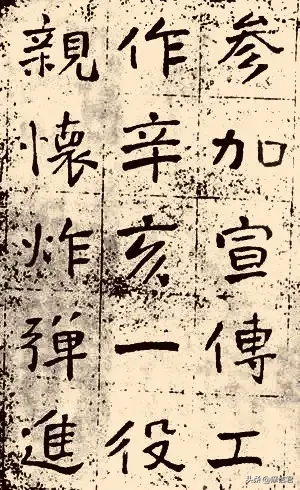 参加宣傳工
作辛亥一役
親懷炸彈進
头条@